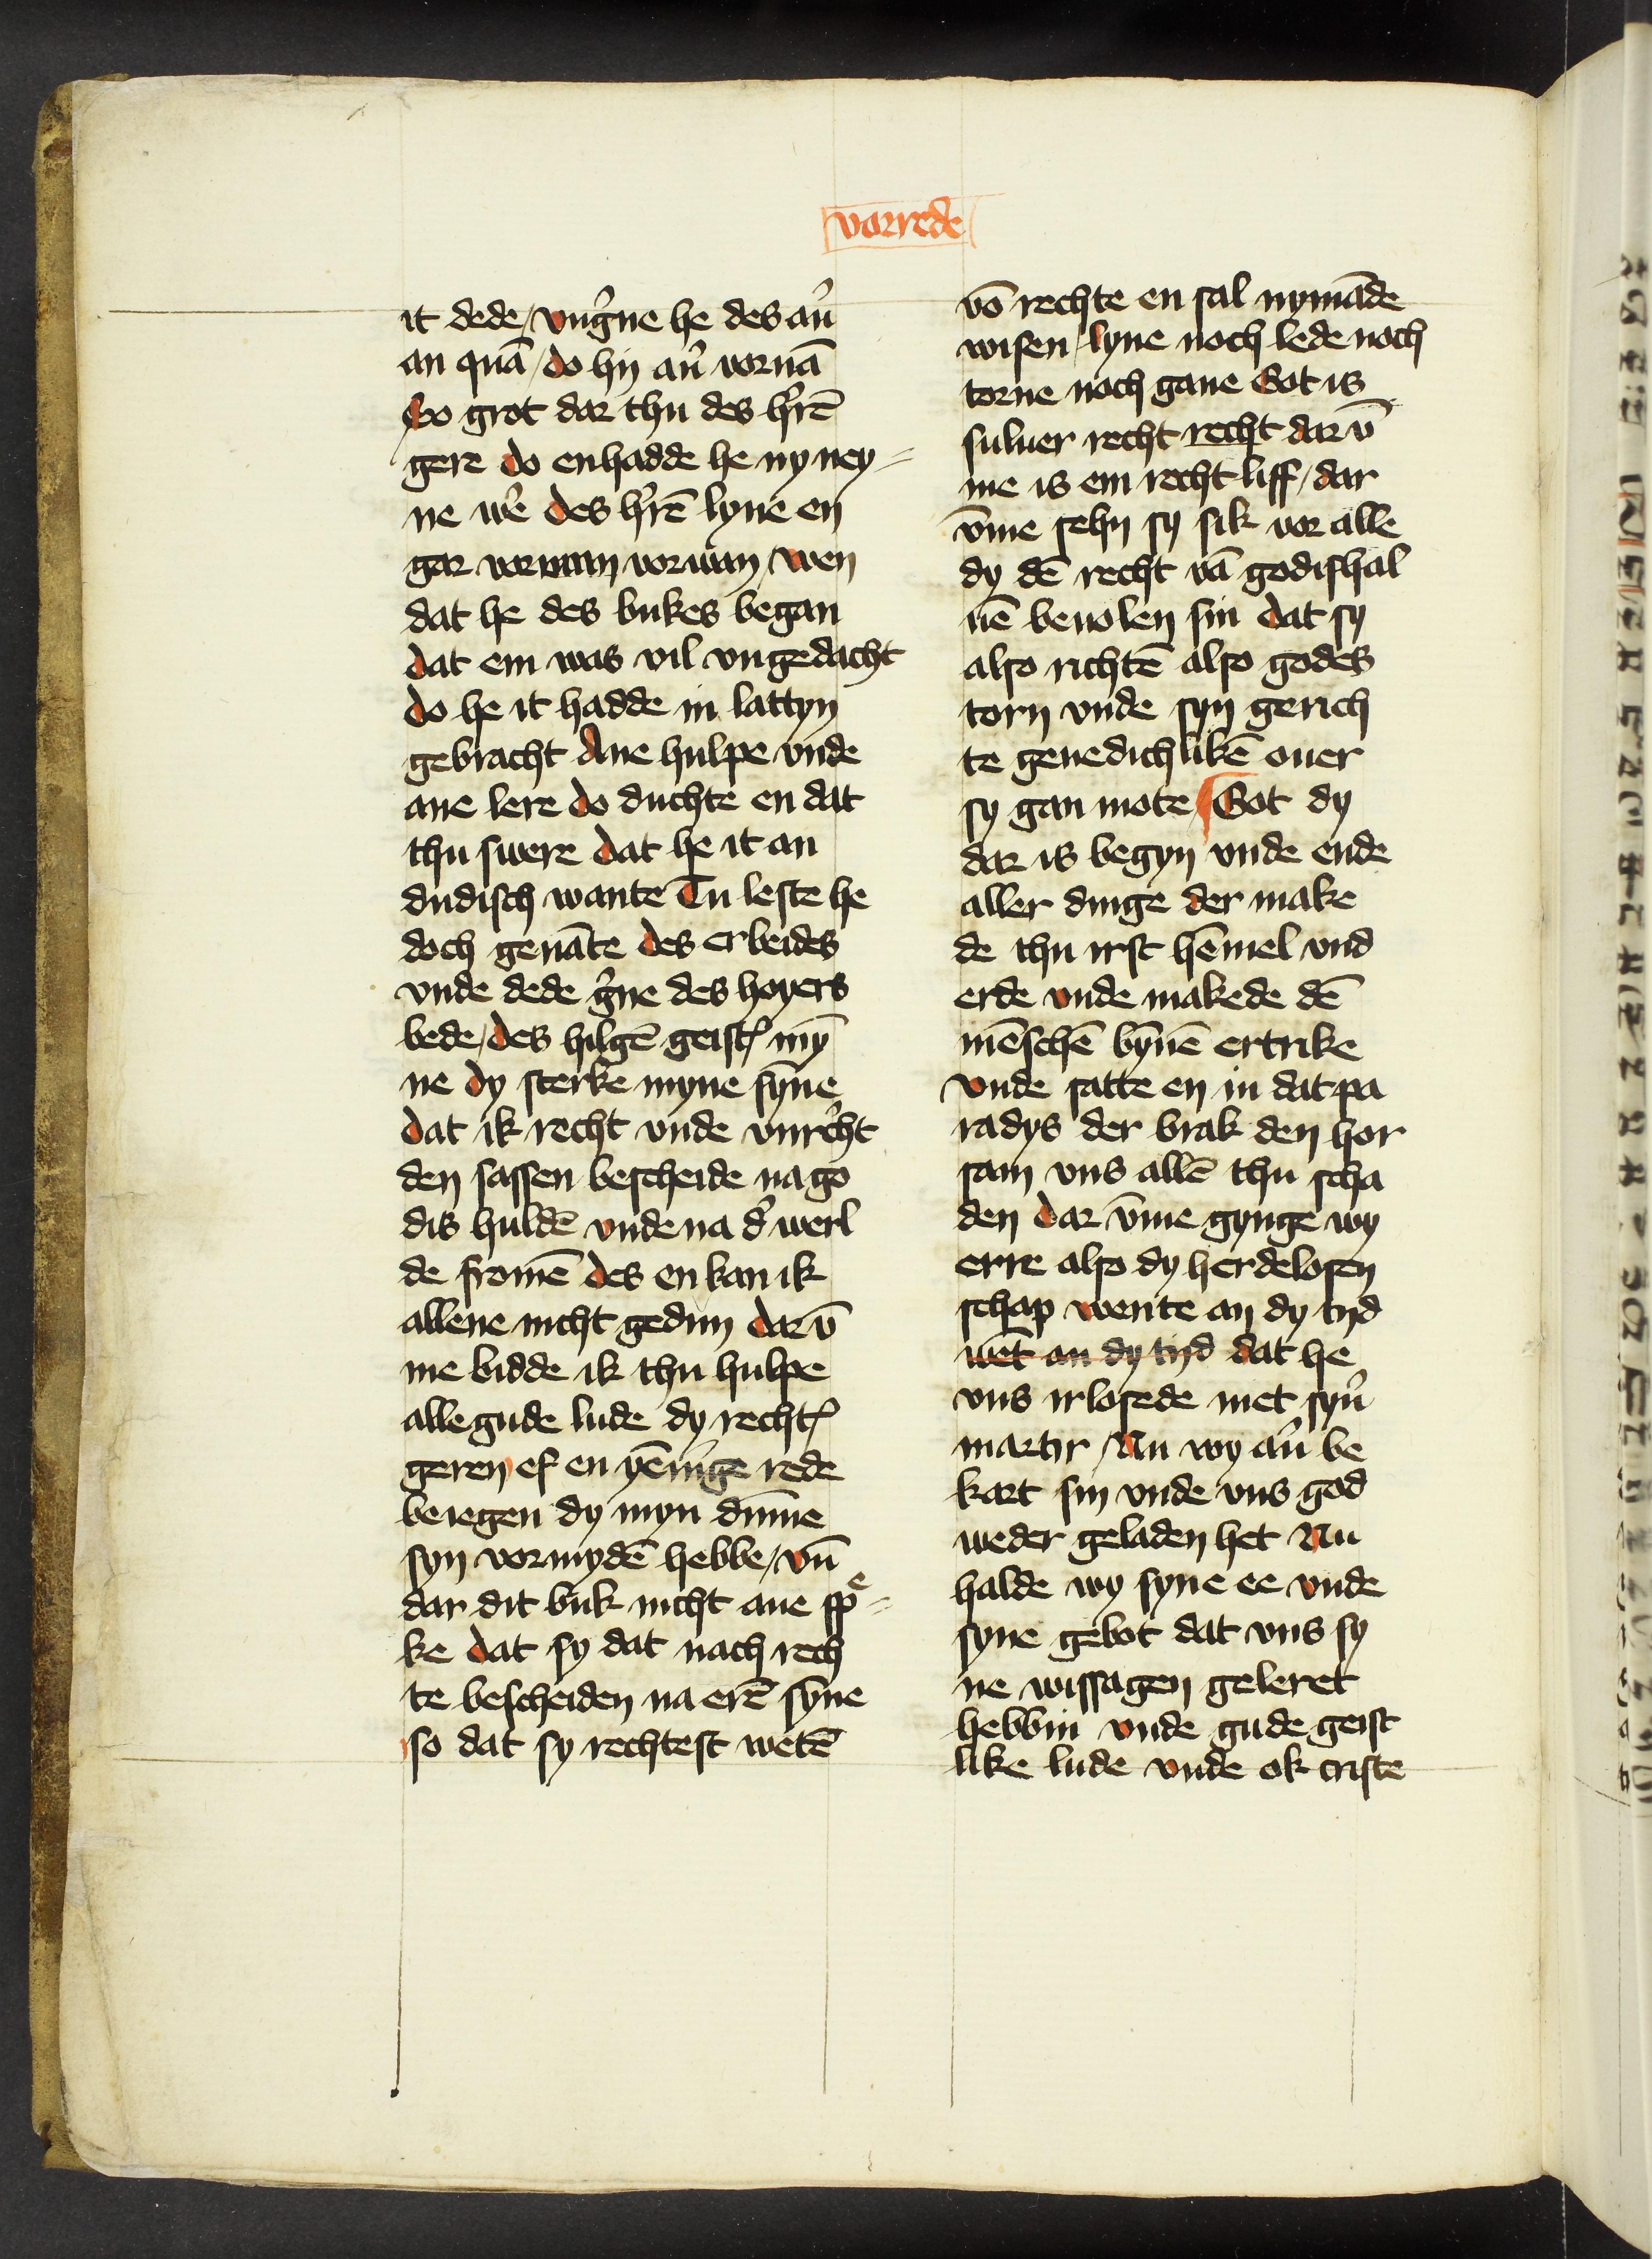 vorrede
it dede / vng͛ne he des au͛
an quā / do hij au͛ vornā
So grot dar thu des h͛rē
gere do enhadde he ny ney=
ne we͛ des h͛rē lyue en
gar vorwan vorwan / wen
dat he des bukes began
dat em was vil vngedacht
do he it hadde in lattyn
gebracht Ane hulpe vnde
ane lere do duchte en dat
thu swere dat he it an
dudisch wante Tu leste he
doch genāte des erbeides
vnde dede g͛ne des hoyers
bede / des hilgē geistꝭ my̅
ne dy sterke myne sy̅ne
dat ik recht vnde vnr͛cht
den sassen bescheide na go
dis huldē vnde na d͛ werl
de fromē des en kan ik
allene nicht gedun dar v̄
me bidde ik thu hulpe
alle gude lude dy rechtꝭ
geren ef en yēnͥge rede
beiegen dy myn du̅me
syn vormydē hebbe / vn̄
dar dit buk nicht ane spͤ=
ke dat sy dat nach rech
te bescheiden na erē sy̅ne
so dat sy rechtest wetē
vō rechte en sal nymāde
wisen / lyue noch lede noch
torne noch gaue Got is
suluer recht recht dar v̄
me is em recht liff / dar
v̄me sehn sy sik vor alle
dy dē recht vā godishal
uē beuolen sin dat sy
also richtē also godes
torn vnde syn gerich
te genedichlikē ouer
sy gan mote / Got dy
dar is begyn vnde ende
aller dinge der make
de thu irst hēmel vnd
erde vnde makede dē
mēschē by̅nē ertrike
vnde satte en in dat pa
radys der brak den hor
sam vns allē thu scha
den dar v̄me gynge wy
erre also dy herdelosen
schap wente an dy tijd
wēt an dy tijd dat he
vns irlosede met syn͛
martir / Nu wy au͛ be
kart sin vnde vns god
weder geladen het Nu
halde wy syne ee vnde
syne gebot dat vns sy
ne wissagen geleret
hebbin vnde gude geist
like lude vnde ok criste